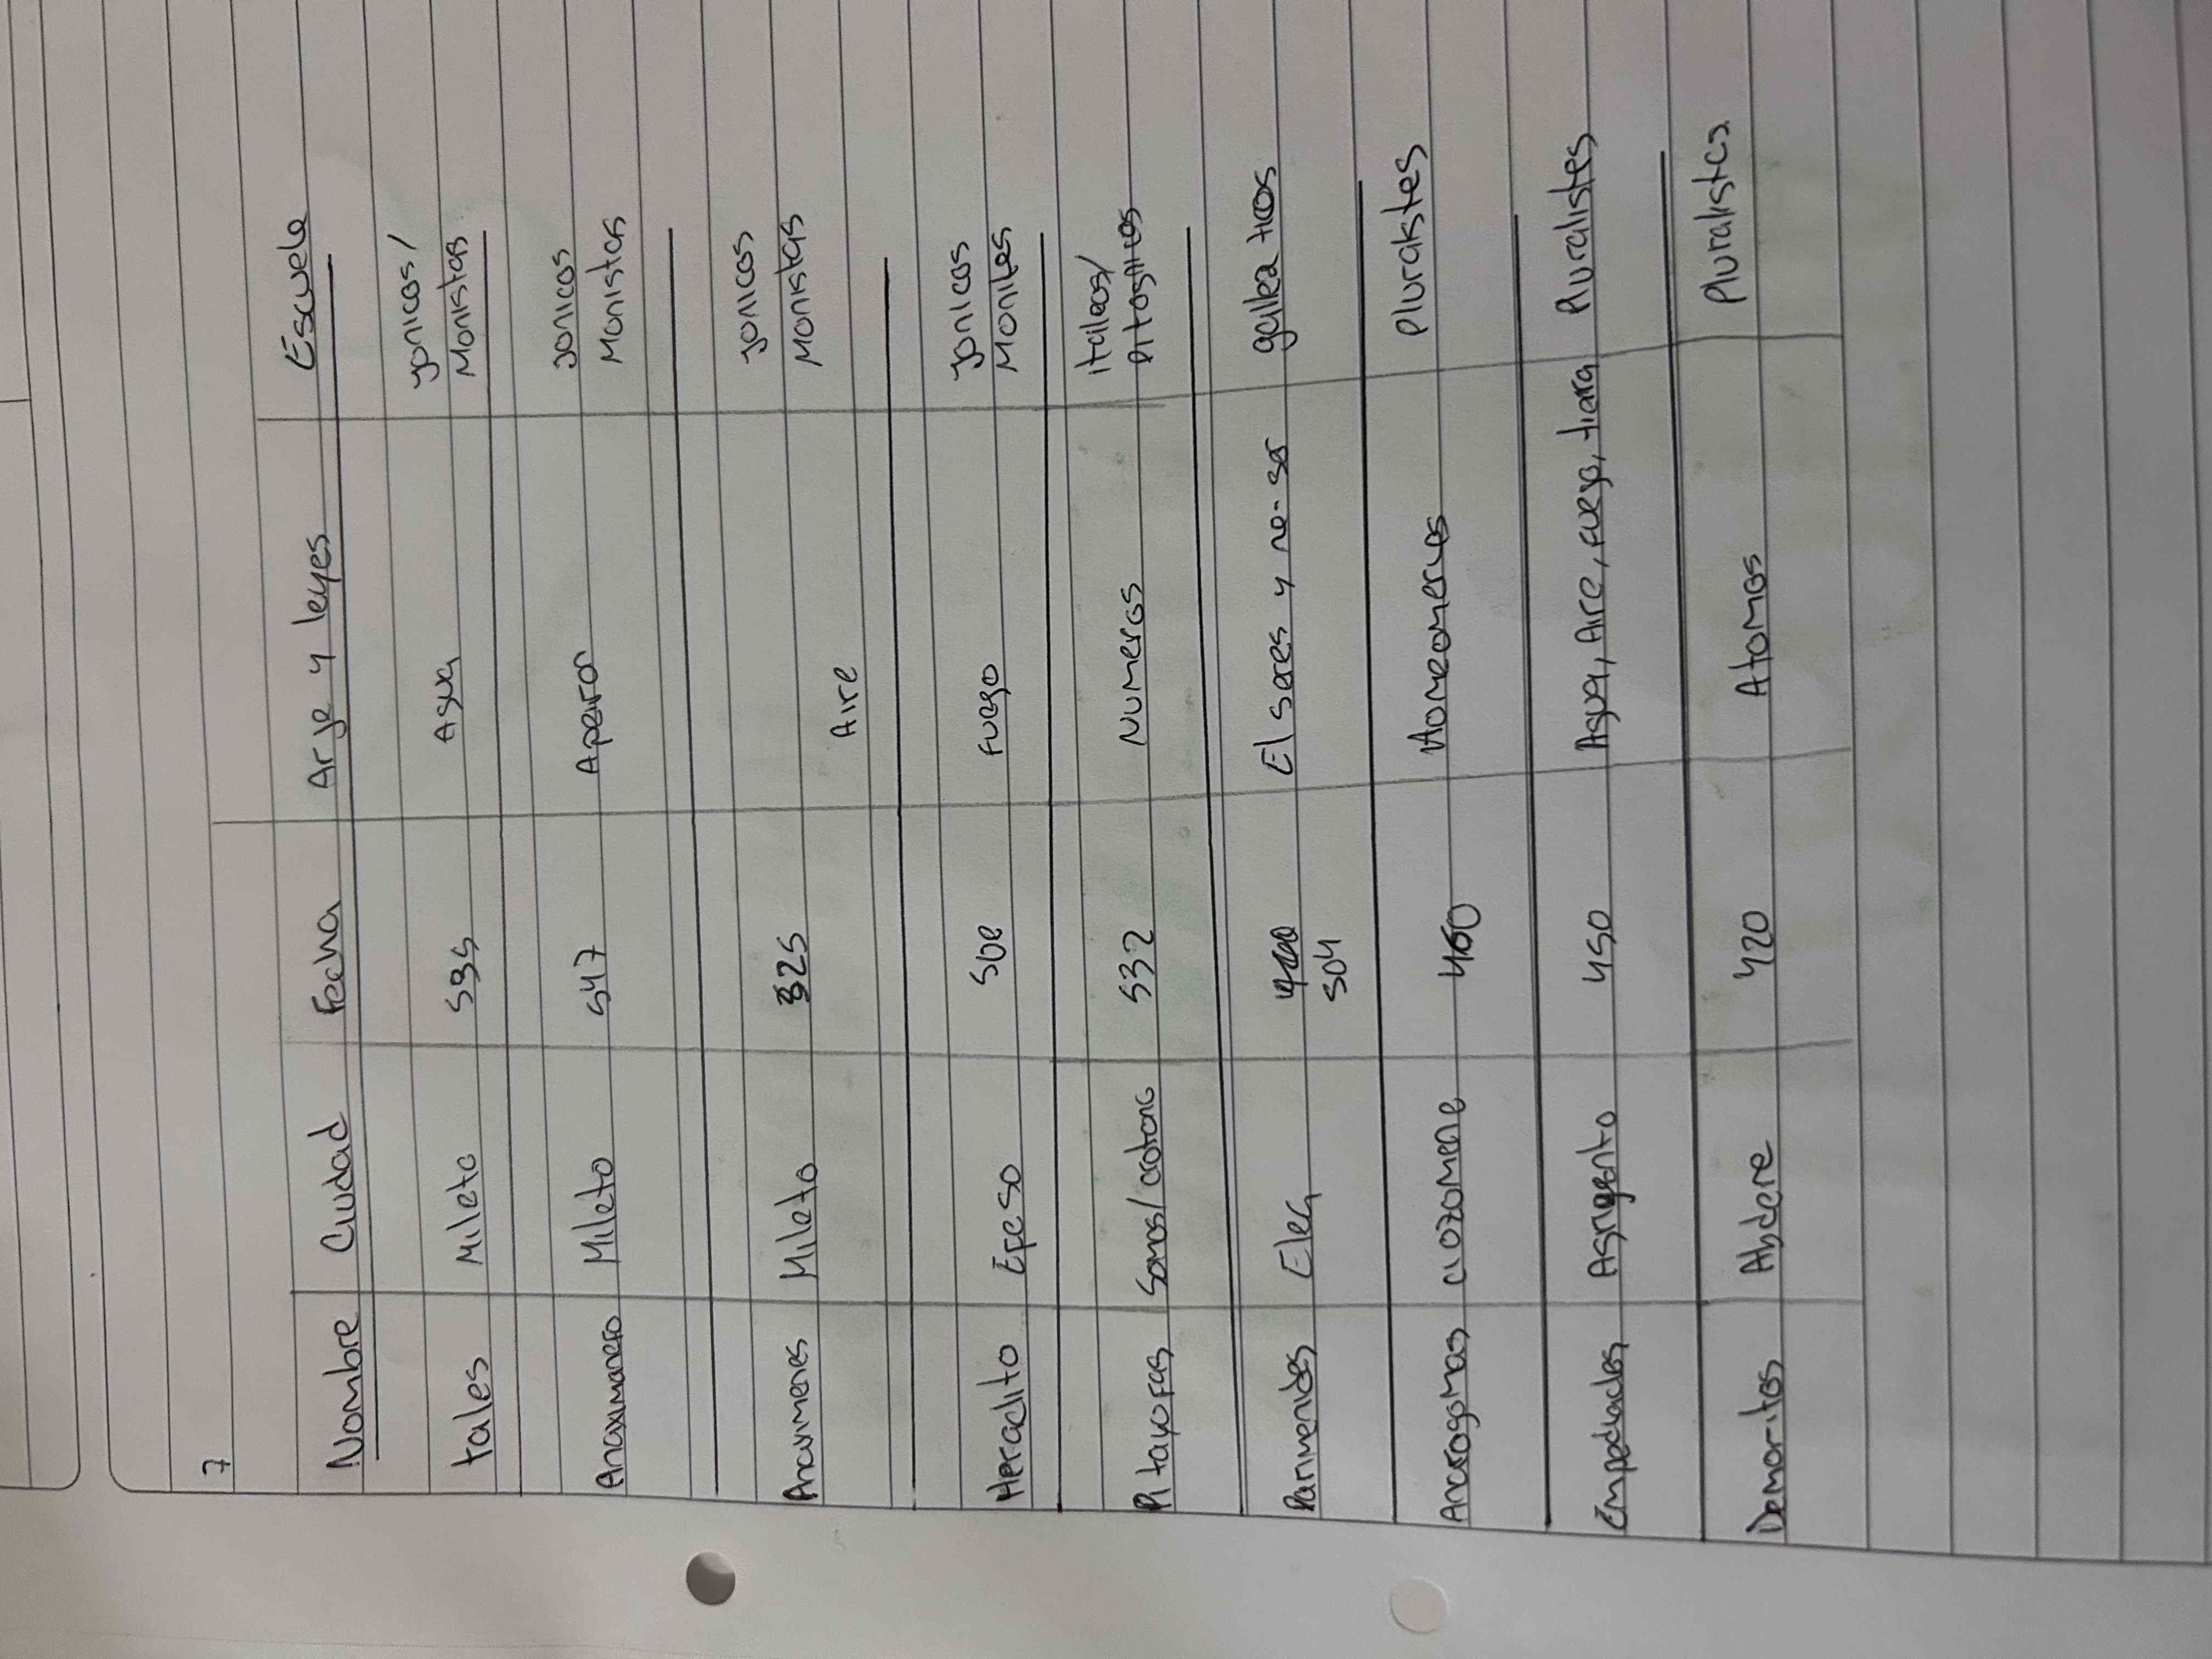 7
Nombre Ciudad Fecha Arje y leyes Escuela
tales Mileto 595 Agua jonicos/
Monistas
Anaximanero Mileto 547 Apeiron jonicos
Monistas
Anaximenes Mileto 525 Aire jonicos
Monistas
Heraclito Efeso 500 Fuego jonicos
Monites
Pitagoras Samos/crotona 532 Numeros italeos/
Parmenides Elea 504 El seres y no-ser
Anaxogomas clozomene 460 Homeomerias Pluralistes
Empedacles Agrigento 450 Agua, Aire, Fuego, tiara Pluralistes
Democritos Abdere 420 Atomos Pluralistas